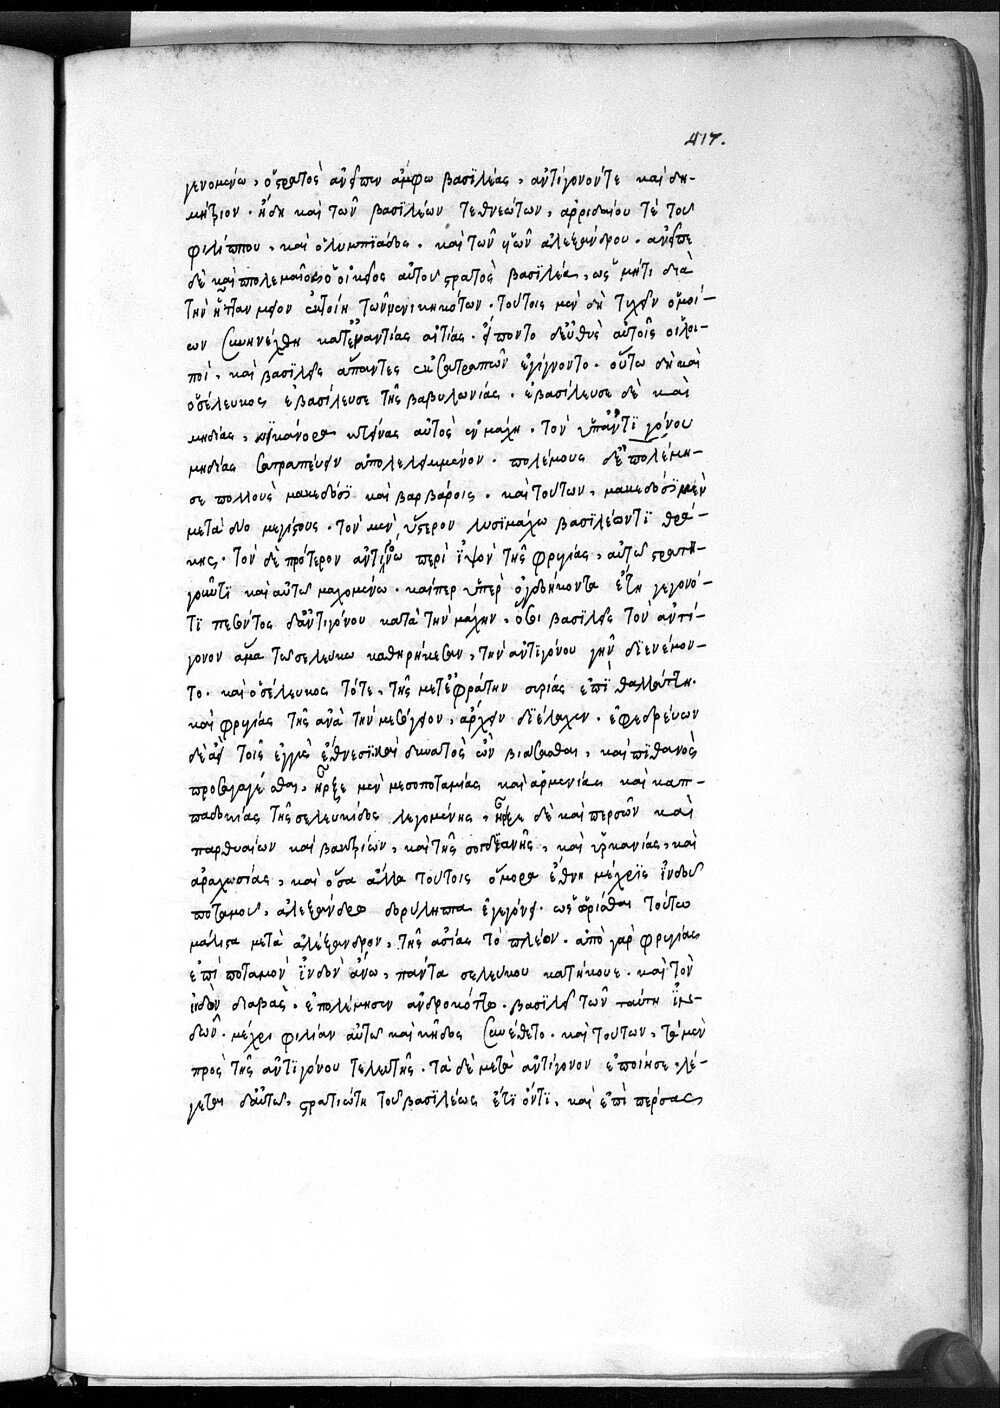 417.
γενομένω, ὁ στρατὸς ἀνεῖπεν ἄμφω βασιλέας, ἀντίγονόν τε καὶ δη-
μήτριον. ἤδη καὶ τῶν βασιλέων τεθνεώτων, ἀρριδαίου τὲ τοῦ
φιλίππου, καὶ ὀλυμπιάδος. καὶ τῶν υἱῶν ἀλεξάνδρου. ἀνεῖπε
δὲ καὶ πτολεμαῖον ὁ οἰκεῖος αὐτοῦ στρατὸς βασιλέα, ὡς μήτι διὰ
τὴν ἧτταν μεῖον ἔχοι τῶν νενικηκότων. τούτοις μὲν δὴ τυχεῖν ὁμοί-
ων συνηνέχθη κατ' ἐναντίας αἰτίας. εἵποντο δ' εὐθὺς αὐτοῖς οἱ λοι-
ποὶ, καὶ βασιλεῖς ἅπαντες ἐκ σατραπῶν ἐγίγνοντο. οὕτω δὴ καὶ
ὁ σέλευκος ἐβασίλευσε τῆς βαβυλωνίας. ἐβασίλευσε δὲ καὶ
μηδίας, νικάνορα κτείνας αὐτὸς ἐν μάχη. τὸν ὑπ' ἀντιγόνου
μηδίας σατραπεύειν ἀπολελειμμένον. πολέμους δ' ἐπολέμη-
σε πολλοὺς μακεδόσι καὶ βαρβάροις. καὶ τούτων, μακεδόσι μὲν
μετὰ δύο μεγίστους. τὸν μὲν, ὕστερον λυσιμάχω βασιλεύοντι θρά-
κης. τὸν δὲ πρότερον ἀντιγόνω περὶ ἴψον τῆς φρυγίας, αὐτῶ στρατη-
γοῦντι καὶ αὐτῶ μαχομένω. καίπερ ὑπὲρ ὀγδοήκοντα ἔτη γεγονό-
τι πεσόντος δ' ἀντιγόνου κατὰ τὴν μάχην, ὅσοι βασιλεῖς τὸν ἀντί-
γονον ἅμα τῶ σελεύκω καθηρήκεσαν, τὴν ἀντιγόνου γῆν διενέμον-
το. καὶ ὁ σέλευκος τότε, τῆς μετ' εὐφράτην συρίας ἐπὶ θαλάττη.
καὶ φρυγίας τῆς ἀνὰ τὴν μεσόγειον, ἄρχειν διέλαχεν. ἐφεδρεύων
δὲ ἀεὶ τοῖς ἐγγὺς ἔθνεσι καὶ δυνατὸς ὢν βιάσασθαι, καὶ πιθανὸς
προσαγαγέσθαι, ἦρξε μὲν μεσοποταμίας καὶ ἀρμενίας καὶ καπ-
παδοκίας τῆς σελευκίδος λεγομένης, ἦρξε δὲ καὶ περσῶν καὶ
παρθυαίων καὶ βακτρίων, καὶ τῆς σογδιανῆς, καὶ ὑρκανίας, καὶ
ἀραχωσίας, καὶ ὅσα ἄλλα τούτοις ὅμορα ἔθνη μέχρις ἰνδοῦ
ποταμοῦ, ἀλεξάνδρω δορύληπτα ἐγεγόνει. ὡς ὡρίσθαι τούτω
μάλιστα μετὰ ἀλέξανδρον, τῆς ἀσίας τὸ πλέον. ἀπὸ γὰρ φρυγίας
ἐπὶ ποταμὸν ἰνδὸν ἄνω, πάντα σελεύκου κατήκουε. καὶ τὸν
ἰνδὸν διαβὰς. ἐπολέμησεν ἀνδροκόττω. βασιλεῖ τῶν ταύτη ἰν-
δῶν. μέχρι φιλίαν αὐτῶ καὶ κῆδος συνέθετο. καὶ τούτων, τὰ μὲν
πρὸς τῆς ἀντιγόνου τελευτῆς. τὰ δὲ μετὰ ἀντίγονον ἐποίησε. λέ-
γεται δ' αὐτῶ, στρατιώτη τοῦ βασιλέως ἔτι ὄντι, καὶ ἐπὶ πέρσας